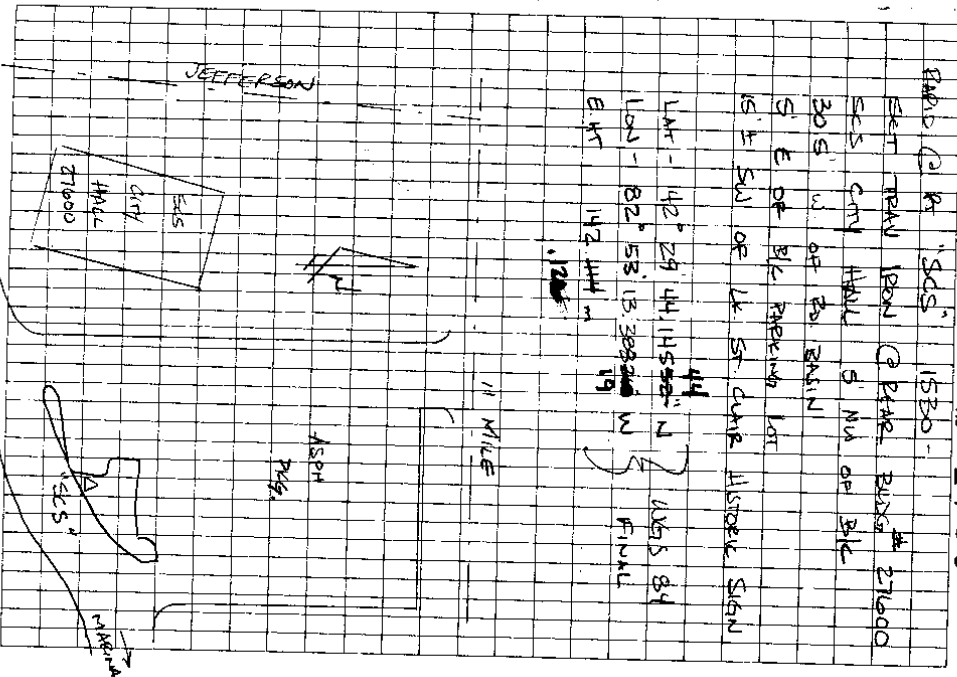 RADIO @ Pt "SCS" 1530 -
SET TRAV IRON @ REAR BLDG # 27600
SCS CITY HALL 5' NW OF B/C
30' S W OF RD. BASIN
5' E OF B/C PARKING LOT
15' ± SW OF LK ST CLAIR HISTORIC SIGN
LAT - 42° 29' 44.145 44" N
LON - 82° 53' 13.308 19 W
WGS 84
FINAL
E HT 142 m
JEFFERSON
SCS
CITY
HALL
27600
N
11 MILE
ASPH
PKG.
"SCS"
MARINA